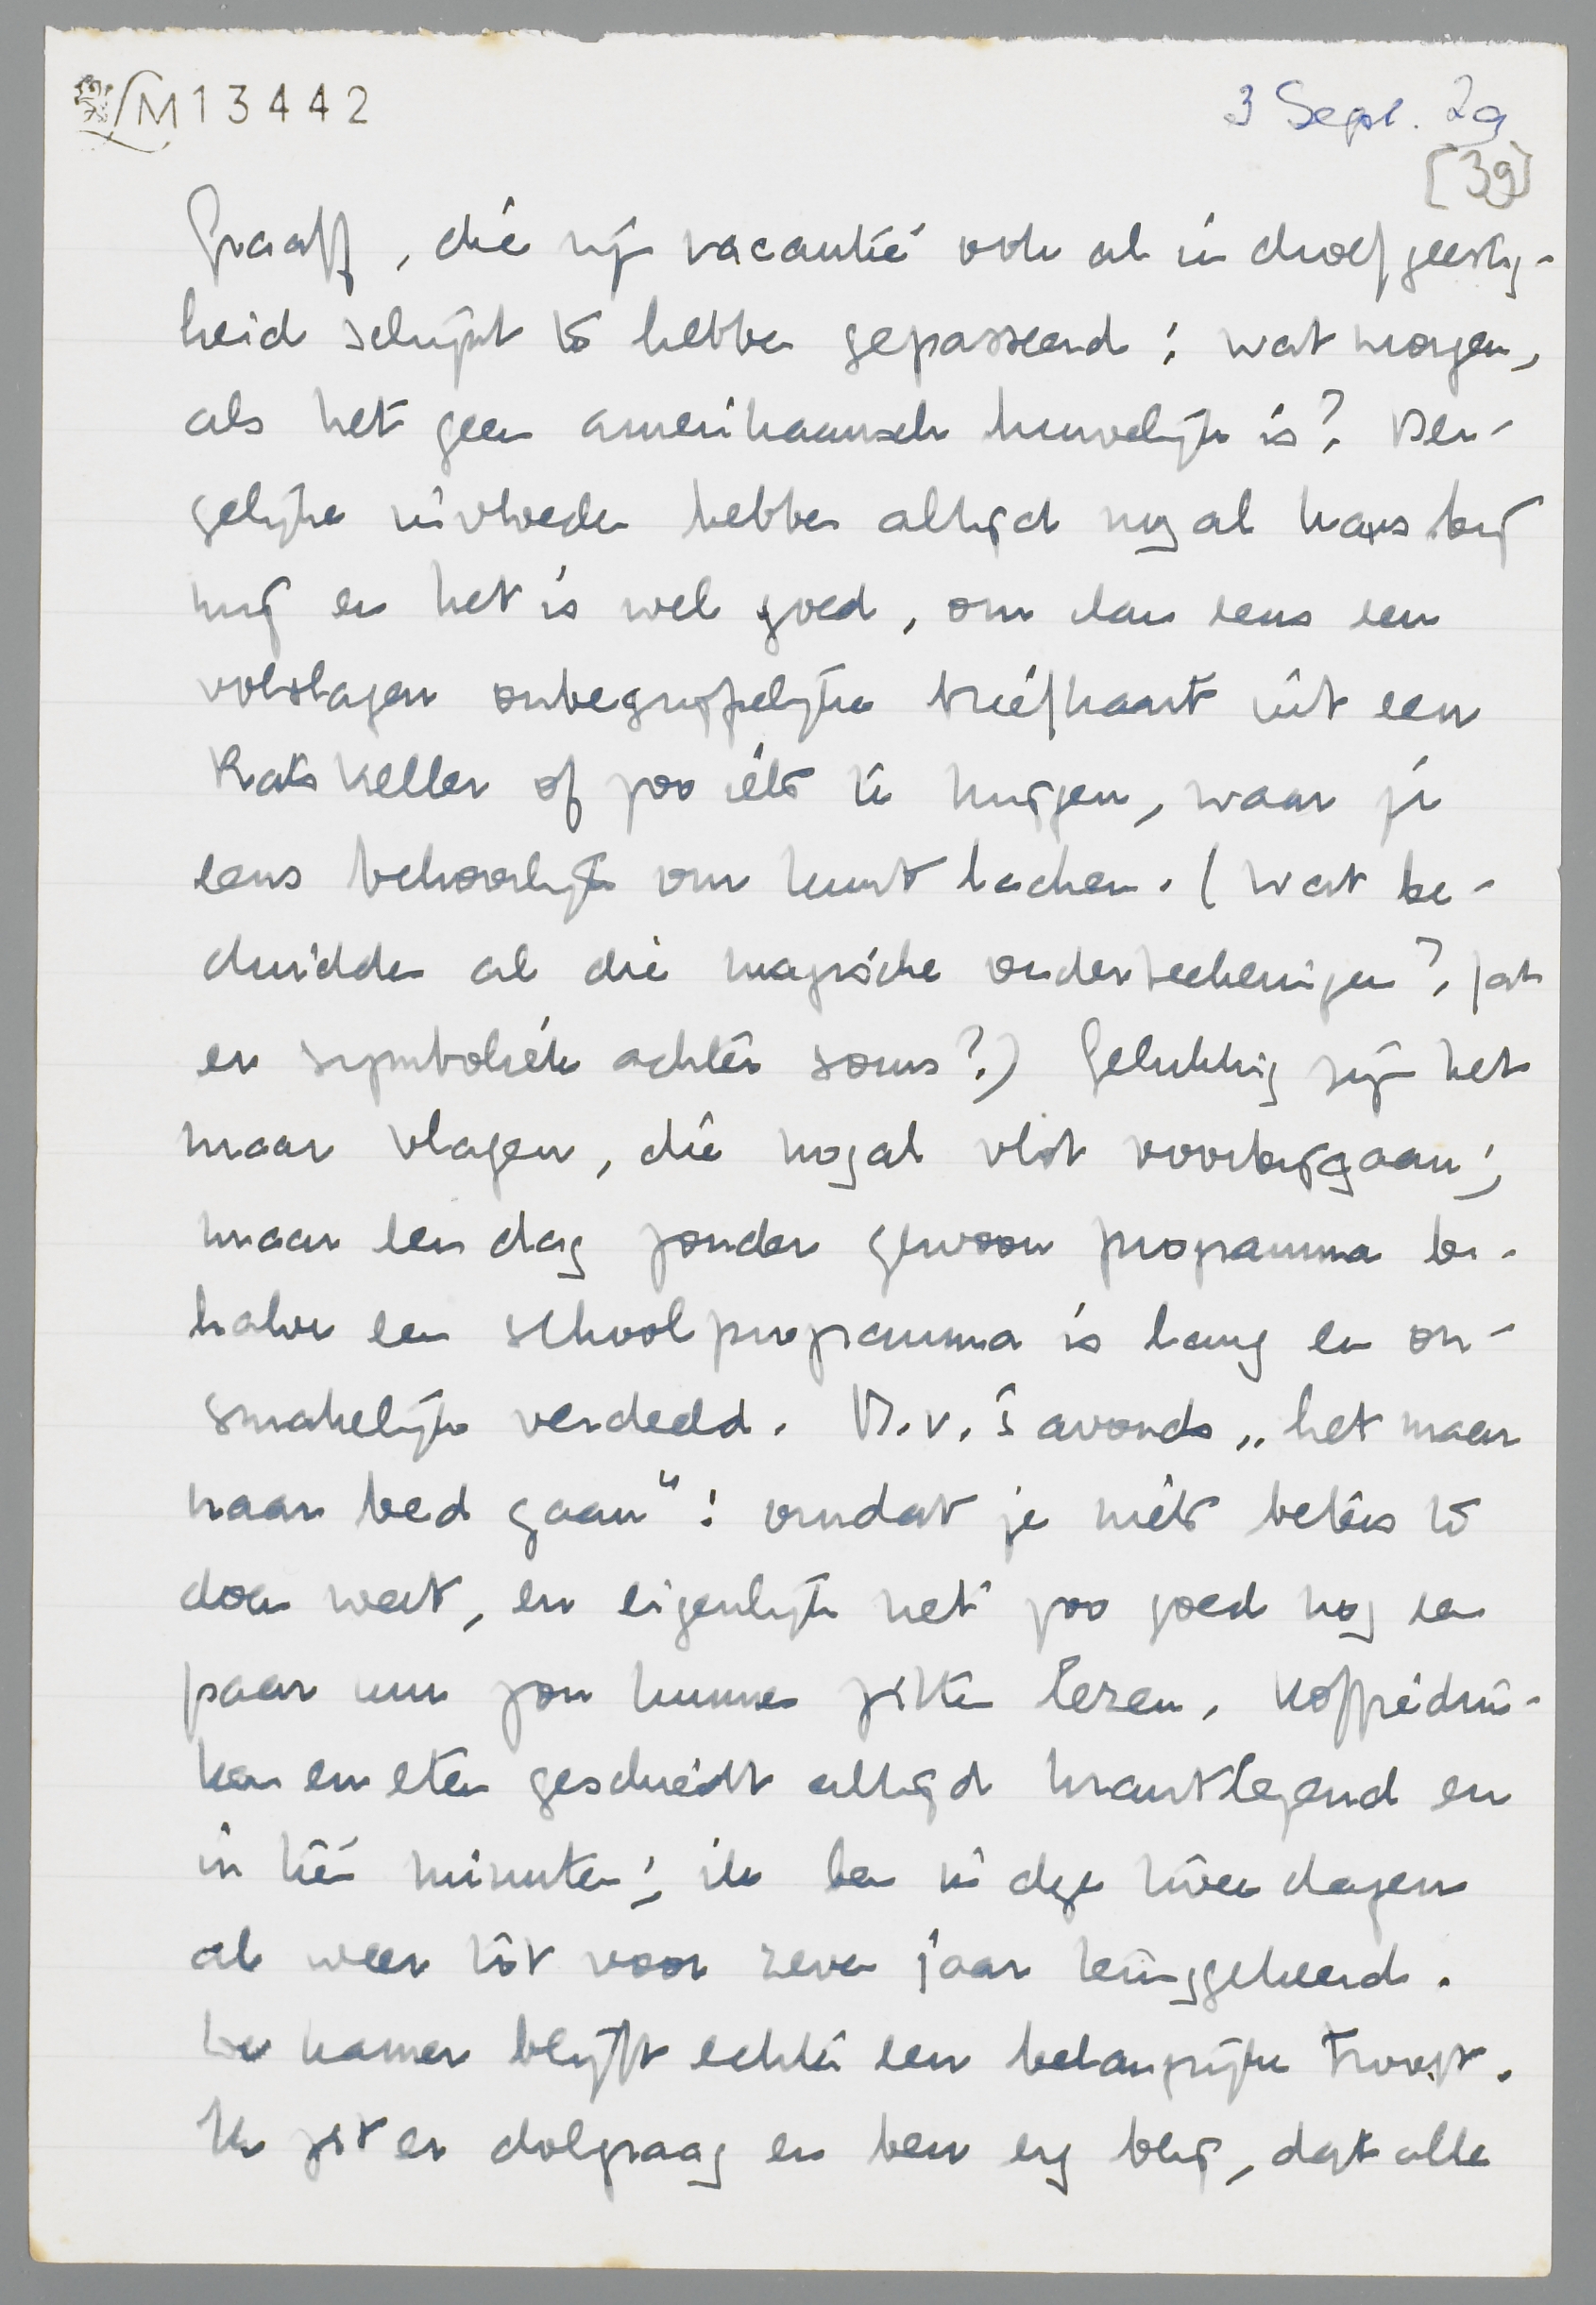 M 13442
3 Sept. 29
[39]
Graaff, die zijn vacantie ook al in droefgeestig-
heid schijnt te hebben gepasseerd; wat morgen,
als het geen amerikaansch huwelijk is? Der-
gelijke invloeden hebben altijd nogal kans bij
mij en het is wel goed, om dan eens een
volslagen onbegrijpelijke briefkaart uit een
Ratskeller of zoo iets te krijgen, waar je
eens behoorlijk om kunt lachen. (Wat be-
duidden al die magische onderteekeningen? Zat
er symboliek achter soms?) Gelukkig zijn het
maar vlagen, die nogal vlot voorbijgaan;
maar een dag zonder gewoon programma be-
halve een schoolprogramma is lang en on-
smakelijk verdeeld. B.v. 's avonds „het maar
naar bed gaan": omdat je niets beters te
doen weet, en eigenlijk net zoo goed nog een
paar uur zou kunnen zitten lezen. Koffiedrin-
ken en eten geschiedt altijd krantlezend en
in tien minuten; ik ben in deze twee dagen
al weer tot voor zeven jaar teruggekeerd.
De kamer blijft echter een belangrijke troost.
Ik zit er dolgraag en ben erg blij, dat alle